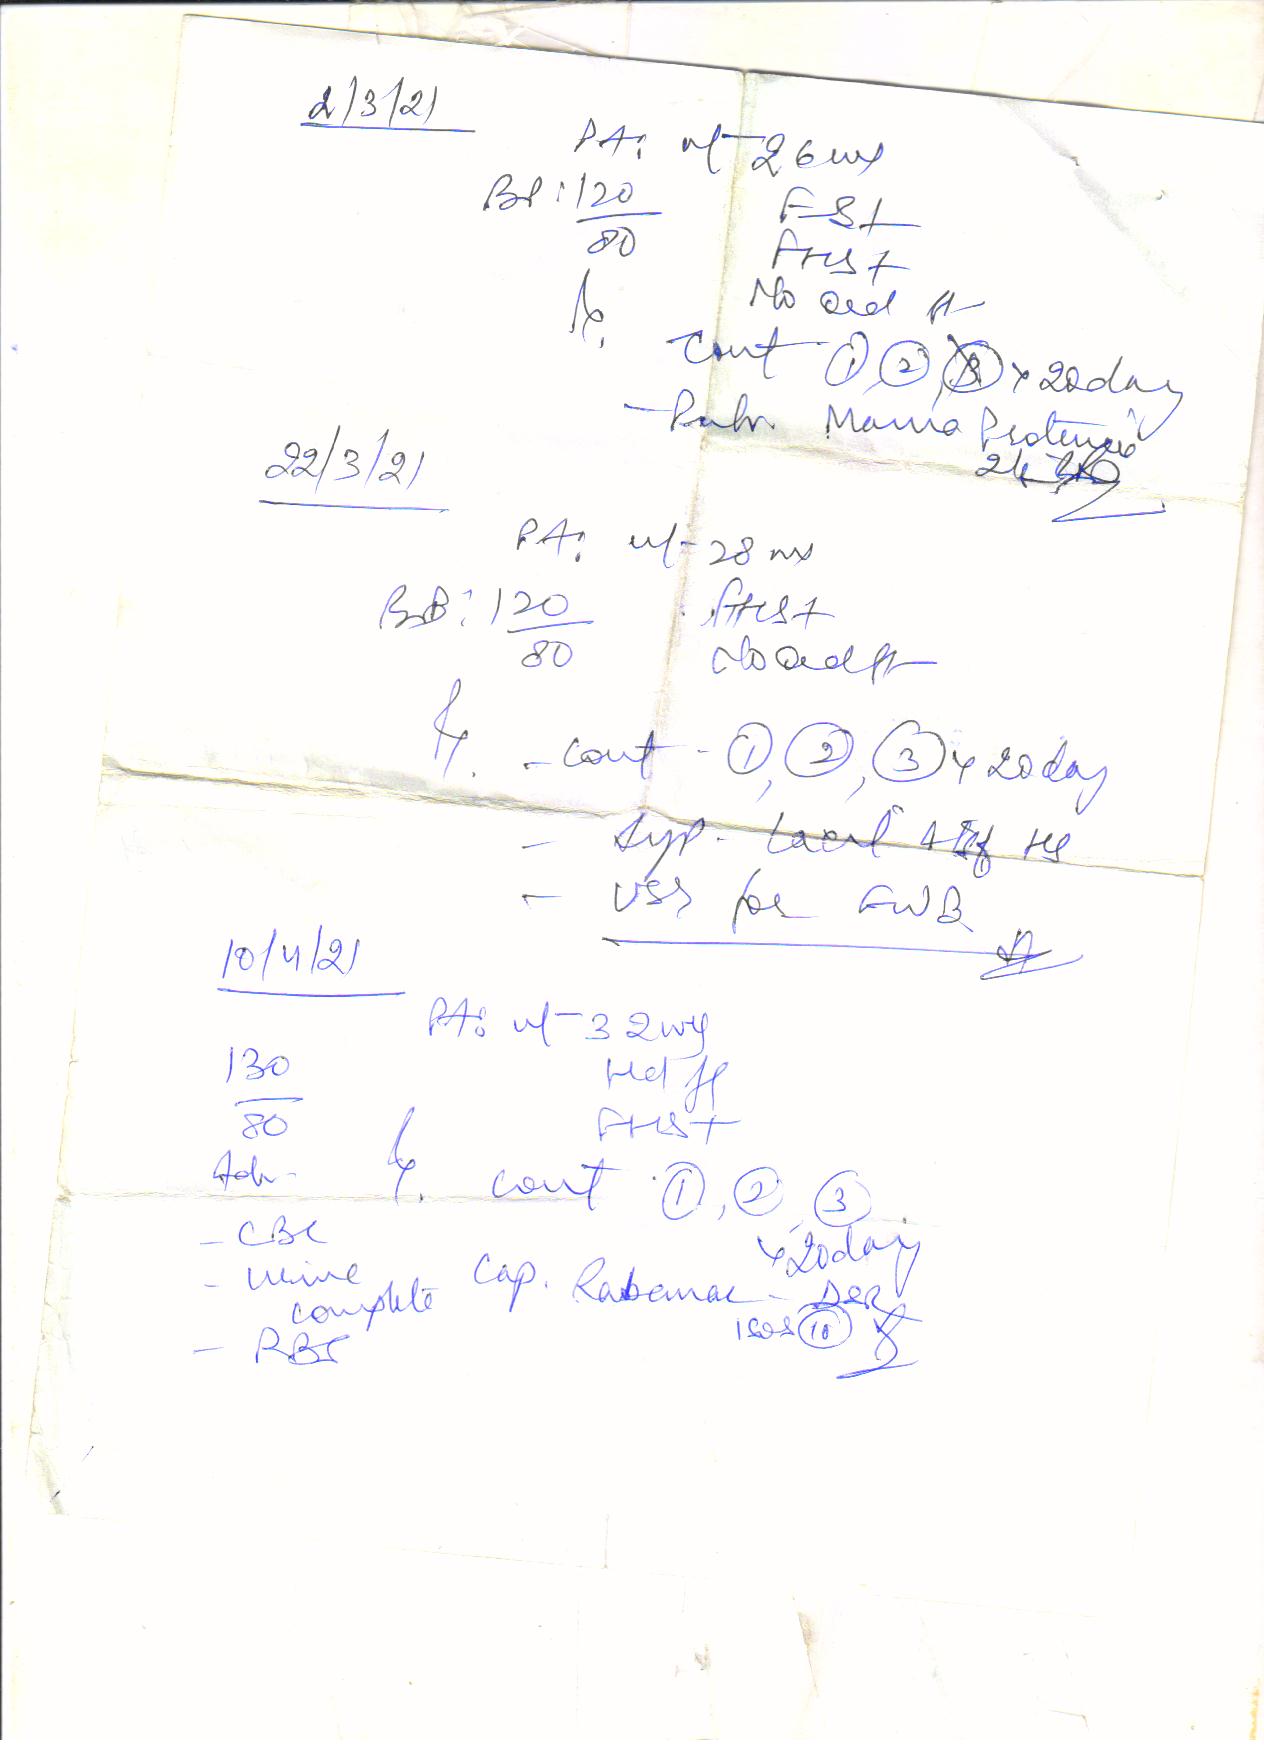 2/3/21
PA: ut-26wx
BP: 120/80
FS+
FHS+
No oed ft
Rx.
Cont ①, ②, ③ x 20day
- Pulv. Mama Protenex
22/3/21
PA: ut-28wx
BP: 120/80
FHS+
No oed ft
Rx.
- Cont - ①, ②, ③ x 20day
- Syp. HS
- USS for FWB
10/4/21
PA: ut-32wx
130/80
Hd ff
FHS+
Adv-
Rx. cont ①, ②, ③
x 20day
- CBC
- urine complete
Cap. Rabemac - DSR
1 sos ⑩
- RBS